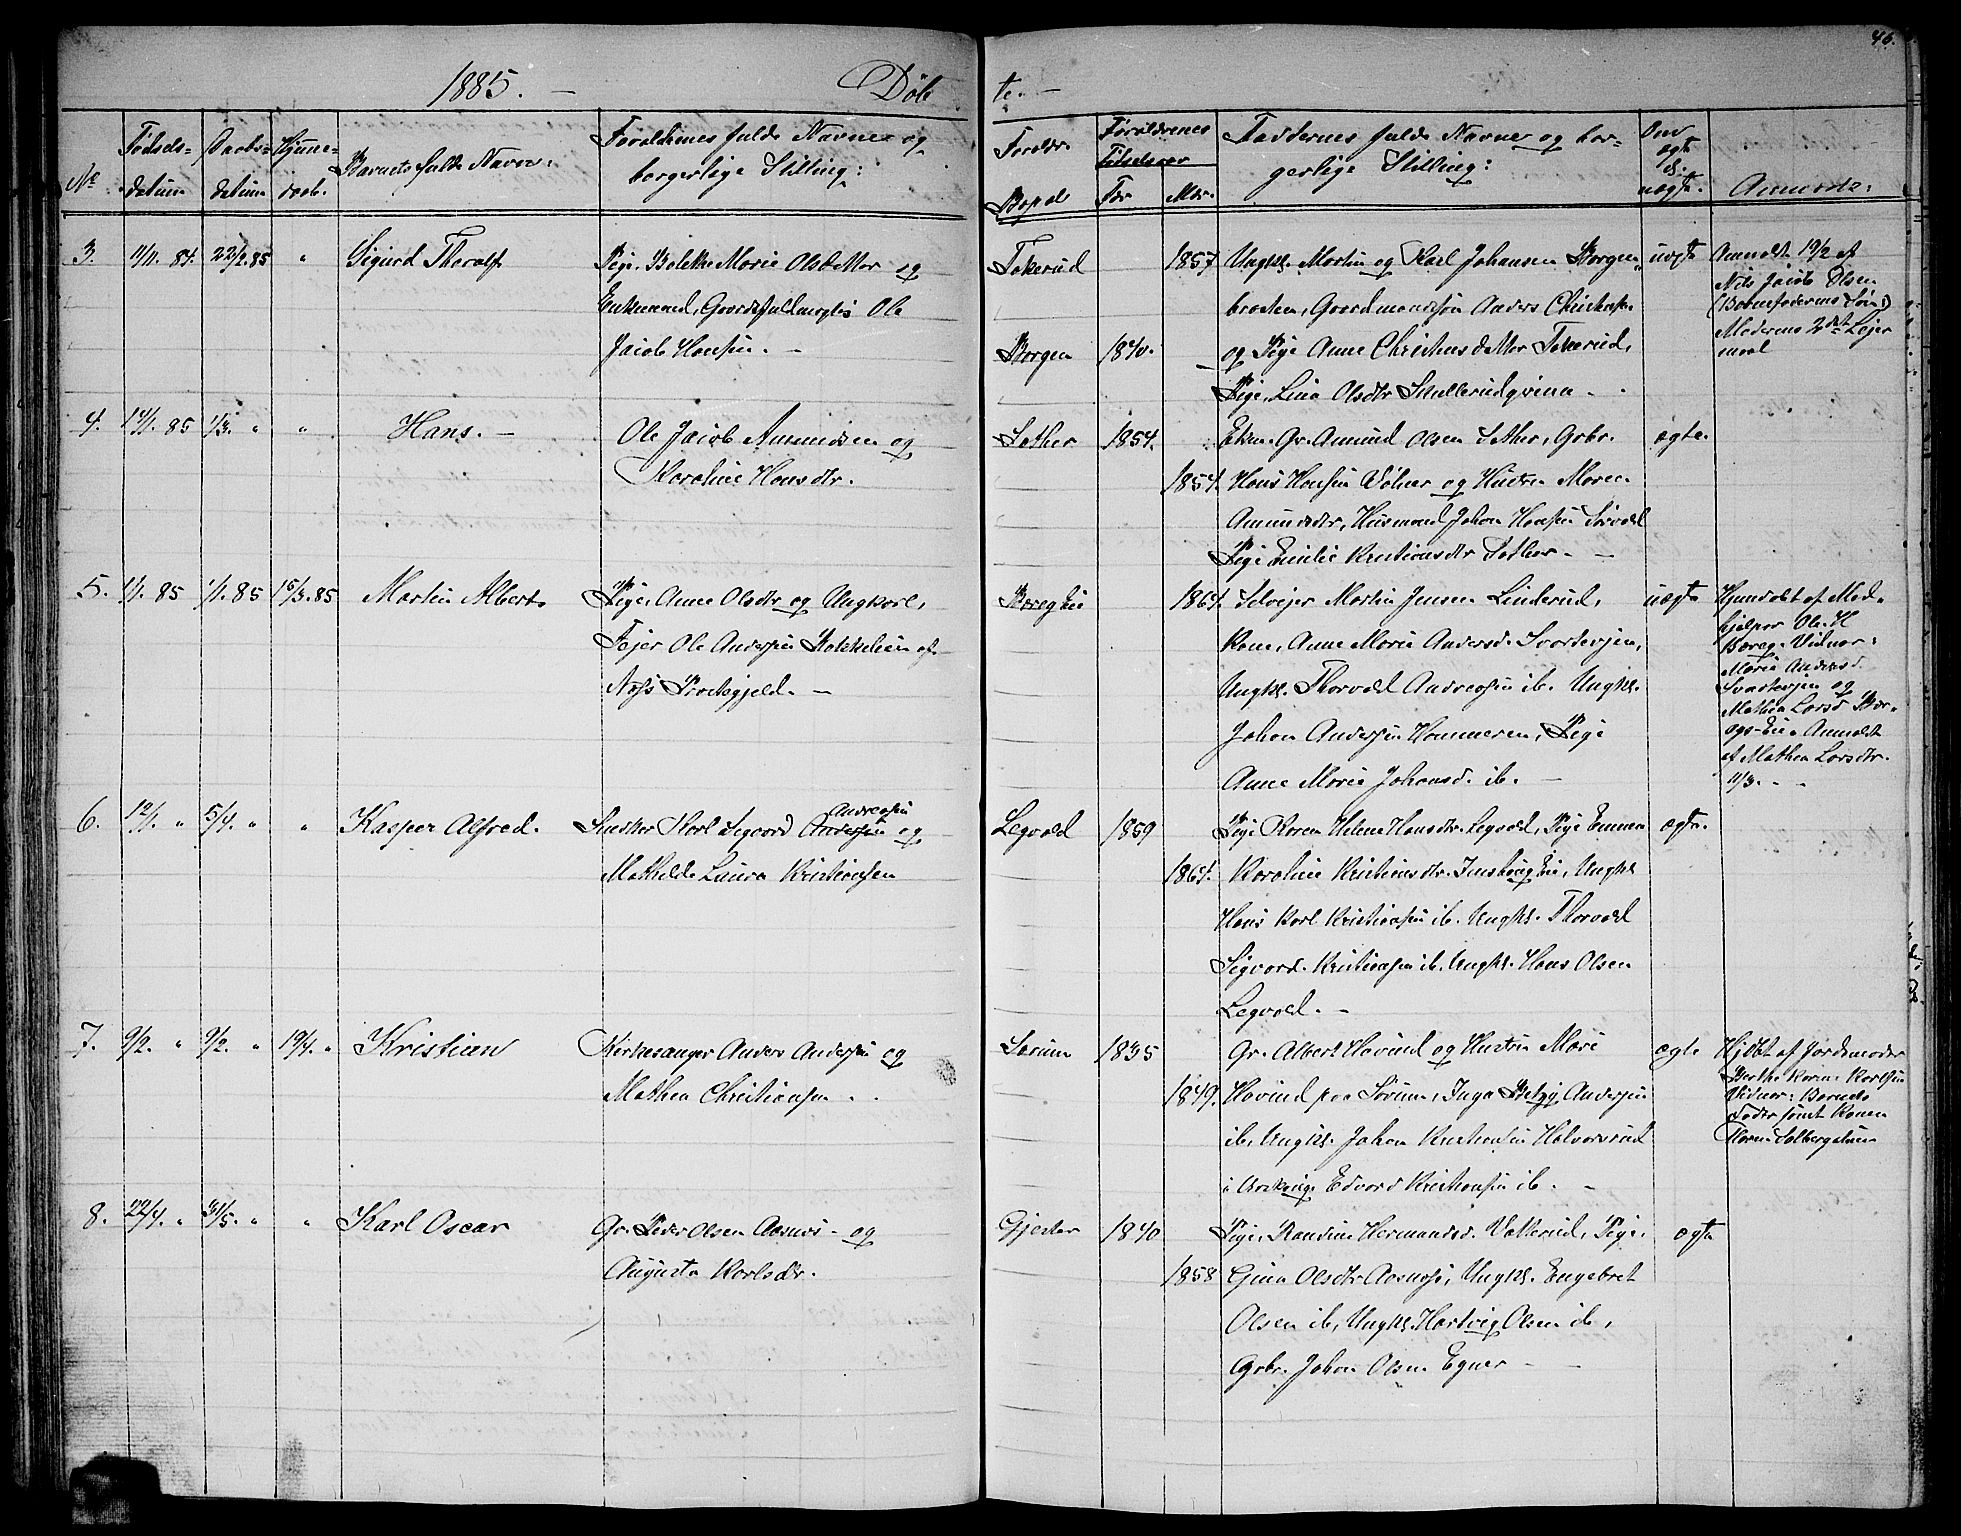 46.
1885. — Døb te. —
No
Fødsels-
datum
Daabs-
datum
Hjemme-
daab.
Barnets fulde Navn.
Forældrenes fulde Navne og
borgerlige Stilling:
Foreldr.
Bopæl
Forældrenes
Fødselsaar
Far
Mor.
Faddernes fulde Navne og bor-
gerlige Stilling:
Om
ægte
el.
uægte.
Anmærk:
3. 11/11. 84. 22/2. 85 " Sigurd Thoralf
Pige, Bolette Marie Olsdatter og
Enkemand, Gaardsfuldmægtig Ole
Jacob Hansen. —
Tokerud
Borgen 1840.
1857
Ungkl. Martin og Karl Johansen Borgen-
braaten, Gaardmandssøn Anders Christians.
og Pige Anne Christensdatter Tokerud,
Pige, Lina Olsdtr Skullerudqvina —
uægte
Anmeldt 19/2 af
Nils Jacob Olsen
(Barnefaderens Søn)
Moderens 2det Lejer
maal
4. 14/1. 85 1/3. " " Hans. —
Ole Jacob Amundsen og
Karoline Hansdtr.
Sæther 1854.
1854.
Ekm. Gr. Amund Olsen Sæther, Grbr.
Hans Hansen Volner og Hustru Maren
Amundsdtr, Husmand Johan Hansen
Pige Emilie Kristiansdtr Sæther — —
ægte.
5. 1/1. 85 1/1. 85 15/3. 85 Martin Albert
Pige, Anne Olsdtr og Ungkarl,
Fejer Ole Andersen Bakkelien af
Næs Præstegjeld. —
Baregeie
1864.
Selvejer Martin Jensen Linderud,
Kone, Anne Marie Andersd. Svartevjen,
Ungkl. Thorvald Andreasen ib. Ungkl.
Johan Andersen Hammeren, Pige
Anne Marie Johansd. ib. —
uægte
Hjemdøbt af Med-
hjelper Ole H
Bareg. Vidner:
Marie Andersd.
Svartevjen og
Mathea Larsd Bar-
egs-Eie. Anmeldt
af Mathea Larsdtr.
11/3. - -
6. 12/1. " 5/4. " " Kasper Alfred.
Andreasen
Snedker Karl Sigvard Andersen og
Mathilde Laura Kristiansen
Legvold 1859
1864.
Pige Karen Helene Hansdtr. Legvold, Pige Emma
Karoline Kristiansdtr. Eie, Ungkl
Hans Karl Kristiansen ib. Ungkl. Thorvald
Sigvard. Kristiansen ib. Ungkl. Hans Olsen
Legvold. —
ægte.
7. 9/2. " 9/2. " 19/4. " Kristian
Kirkesanger Anders Andersen og
Mathea Christiansen . .
Sørum 1835
1849.
Gr. Albert Hovind og Hustru Mari
Hovind paa Sørum, Inga Andersen
ib, Ungkl. Johan Kristiansen Halvorsrud
i Urskoug. Edvard Kristiansen ib. —
ægte
Hjdbt af Jordemoder
Berthe Karine Karlsen
Vidner: Barnets
Fader samt Konen
Karen Solbergstuen
8. 22/4. " 31/5. " " Karl Oscar
Gr. Peder Olsen Aasnæs — og
Augusta Karlsdr.
Gjester 1840
1858
Pige, Randine Hermandsd. Vakerud, Pige,
Gina Olsdtr Aasnæs, Ungkl. Engebret
Olsen ib, Ungkl. Hartvig Olsen ib,
Grbr. Johan Olsen Egner — —
ægte